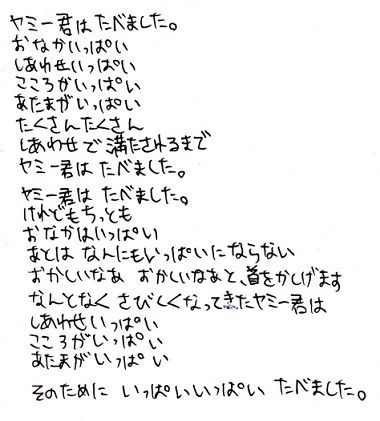 ヤミー君は たべました。
おなかいっぱい
しあわせいっぱい
こころがいっぱい
あたまがいっぱい
たくさんたくさん
しあわせで 満たされるまで
ヤミー君は たべました。
ヤミー君は たべました。
けれどもちっとも
おなかはいっぱい
あとは なんにもいっぱいにならない
おかしいなあ おかしいなあと、首をかしげます
なんとなく さびしくなってきたヤミー君は
しあわせいっぱい
こころがいっぱい
あたまがいっぱい
そのために いっぱいいっぱい たべました。